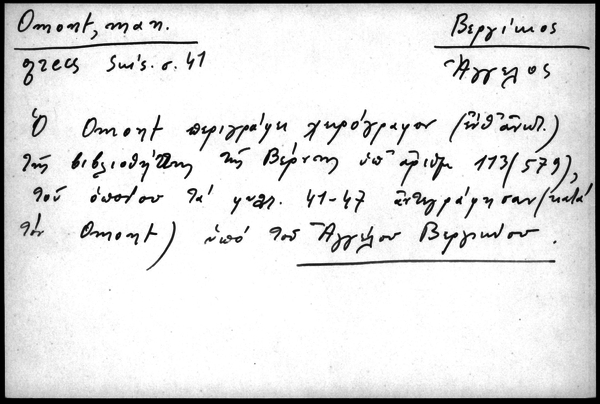 Omont, man.
grecs Suis. σ. 41
Βεργίκιος
Ἄγγελος
Ὁ Omont περιγράφει χειρόγραφον (ἔνθ' ἀνωτ.)
τῆς βιβλιοθήκης τῆς Βέρνης ὑπ' ἀριθμ 113 (579),
τοῦ ὁποίου τά φυλλ. 41-47 ἀντεγράφησαν (κατά
τόν Omont) ὑπό τοῦ Ἀγγέλου Βεργικίου.